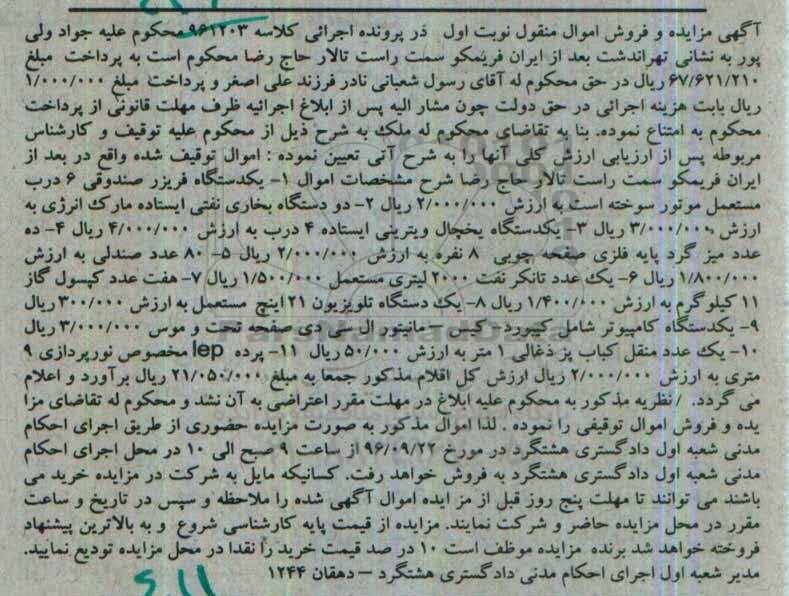 آگهی مزایده و فروش اموال منقول نوبت اول در پرونده اجرائی کلاسه ۹۶۱۲۰۳ محکوم علیه جواد ولی
پور به نشانی تهراندشت بعد از ایران فریمکو سمت راست تالار حاج رضا محکوم است به پرداخت مبلغ
۶۷/۶۲۱/۲۱۰ ریال در حق محکوم له آقای رسول شعبانی نادر فرزند علی اصغر و پرداخت مبلغ ۱/۰۰۰/۰۰۰
ریال بابت هزینه اجرائی در حق دولت چون مشار الیه پس از ابلاغ اجرائیه ظرف مهلت قانونی از پرداخت
محکوم به امتناع نموده. بنا به تقاضای محکوم له ملک به شرح ذیل از محکوم علیه توقیف و کارشناس
مربوطه پس از ارزیابی ارزش کلی آنها را به شرح آتی تعیین نموده : اموال توقیف شده واقع در بعد از
ایران فریمکو سمت راست تالار حاج رضا شرح مشخصات اموال ۱- یکدستگاه فریزر صندوقی ۶ درب
مستعمل موتور سوخته است به ارزش ۲/۰۰۰/۰۰۰ ریال ۲- دو دستگاه بخاری نفتی ایستاده مارک انرژی به
ارزش ۳/۰۰۰/۰۰۰ ریال ۳- یکدستگاه یخچال ویترینی ایستاده ۴ درب به ارزش ۴/۰۰۰/۰۰۰ ریال ۴- ده
عدد میز گرد پایه فلزی صفحه چوبی ۸ نفره به ارزش ۲/۰۰۰/۰۰۰ ریال ۵- ۸۰ عدد صندلی به ارزش
۱/۸۰۰/۰۰۰ ریال ۶- یک عدد تانکر نفت ۲۰۰۰ لیتری مستعمل ۱/۵۰۰/۰۰۰ ریال ۷- هفت عدد کپسول گاز
۱۱ کیلو گرم به ارزش ۱/۴۰۰/۰۰۰ ریال ۸- یک دستگاه تلویزیون ۲۱ اینچ مستعمل به ارزش ۳۰۰/۰۰۰ ریال
۹- یکدستگاه کامپیوتر شامل کیبورد - کیس - مانیتور ال سی دی صفحه تخت و موس ۳/۰۰۰/۰۰۰ ریال
۱۰- یک عدد منقل کباب پز ذغالی ۱ متر به ارزش ۵۰/۰۰۰ ریال ۱۱- پرده lep مخصوص نورپردازی ۹
متری به ارزش ۲/۰۰۰/۰۰۰ ریال ارزش کل اقلام مذکور جمعا به مبلغ ۲۱/۰۵۰/۰۰۰ ریال برآورد و اعلام
می گردد. / نظریه مذکور به محکوم علیه ابلاغ در مهلت مقرر اعتراضی به آن نشد و محکوم له تقاضای مزا
یده و فروش اموال توقیفی را نموده . لذا اموال مذکور به صورت مزایده حضوری از طریق اجرای احکام
مدنی شعبه اول دادگستری هشتگرد در مورخ ۹۶/۰۹/۲۲ از ساعت ۹ صبح الی ۱۰ در محل اجرای احکام
مدنی شعبه اول دادگستری هشتگرد به فروش خواهد رفت. کسانیکه مایل به شرکت در مزایده خرید می
باشند می توانند تا مهلت پنج روز قبل از مز ایده اموال آگهی شده را ملاحظه و سپس در تاریخ و ساعت
مقرر در محل مزایده حاضر و شرکت نمایند. مزایده از قیمت پایه کارشناسی شروع و به بالاترین پیشنهاد
فروخته خواهد شد برنده مزایده موظف است ۱۰ در صد قیمت خرید را نقدا در محل مزایده تودیع نمایید.
مدیر شعبه اول اجرای احکام مدنی دادگستری هشتگرد - دهقان ۱۲۴۴
ParsNamadData